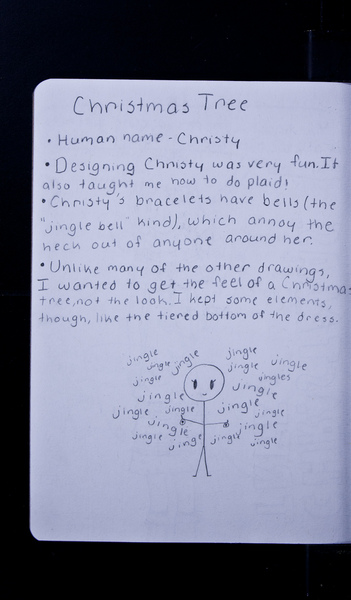 Christmas Tree
• Human name - Christy
• Designing Christy was very fun. It
also taught me how to do plaid!
• Christy's bracelets have bells (the
"jingle bell" kind), which annoy the
heck out of anyone around her.
• Unlike many of the other drawings,
I wanted to get the feel of a Christmas
tree, not the look. I kept some elements,
though, like the tiered bottom of the dress.
jingle jingle jingle jingle jingle
jingle jingle jingles
jingle jingle
jingle jingle jingle jingle
jingle jingle
jingle jinge jingle jingle